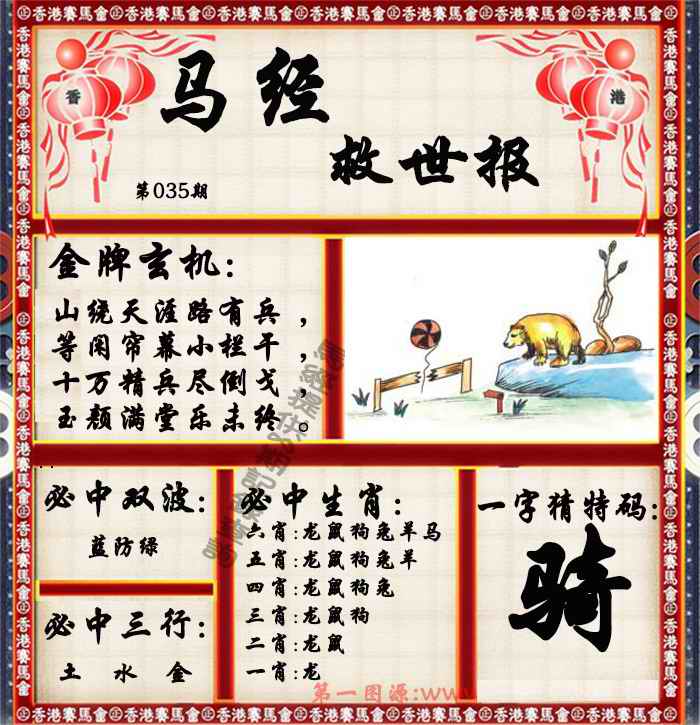 香港賽馬會
香 港
马经
救世报
第035期
金牌玄机:
山绕天涯路有兵，
等闲帘幕小栏干，
十万精兵尽倒戈，
玉颜满堂乐未终。
必中双波:
蓝防绿
必中三行:
土 水 金
必中生肖:
六肖:龙鼠狗兔羊马
五肖:龙鼠狗兔羊
四肖:龙鼠狗兔
三肖:龙鼠狗
二肖:龙鼠
一肖:龙
一字猜特码:
骑
第一图源:www